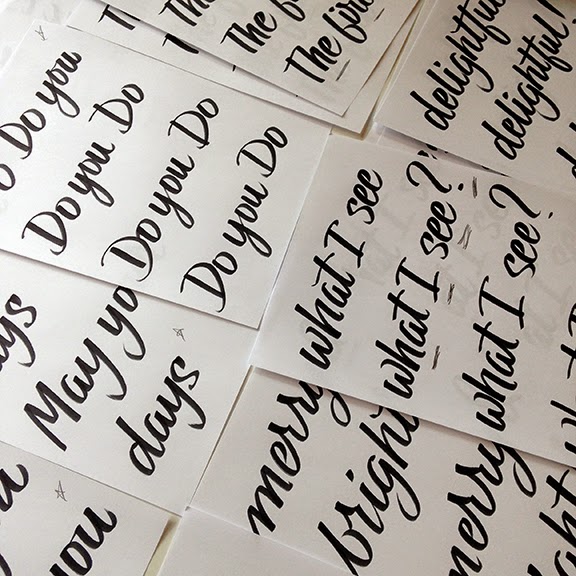 The
The fire
delightful
delightful!
Do you
Do you Do
Do you Do
Do you Do
what I see
what I see?
what I see?
May
days
you
merry
bright
merry